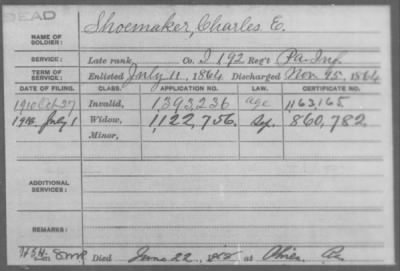 DEAD
NAME OF SOLDIER: Shoemaker, Charles E.
SERVICE: Late rank, Co. I 192 Reg't Pa. Inf.
TERM OF SERVICE: Enlisted July 11, 1864 Discharged Nov. 1864
DATE OF FILING. CLASS. APPLICATION NO. LAW. CERTIFICATE NO.
1910 Oct 27 Invalid, 1,393,236 age 1163,165
July 1 Widow, 1,122,756 860,782.
Minor,
ADDITIONAL SERVICES:
REMARKS:
Died June 22, at Pa.